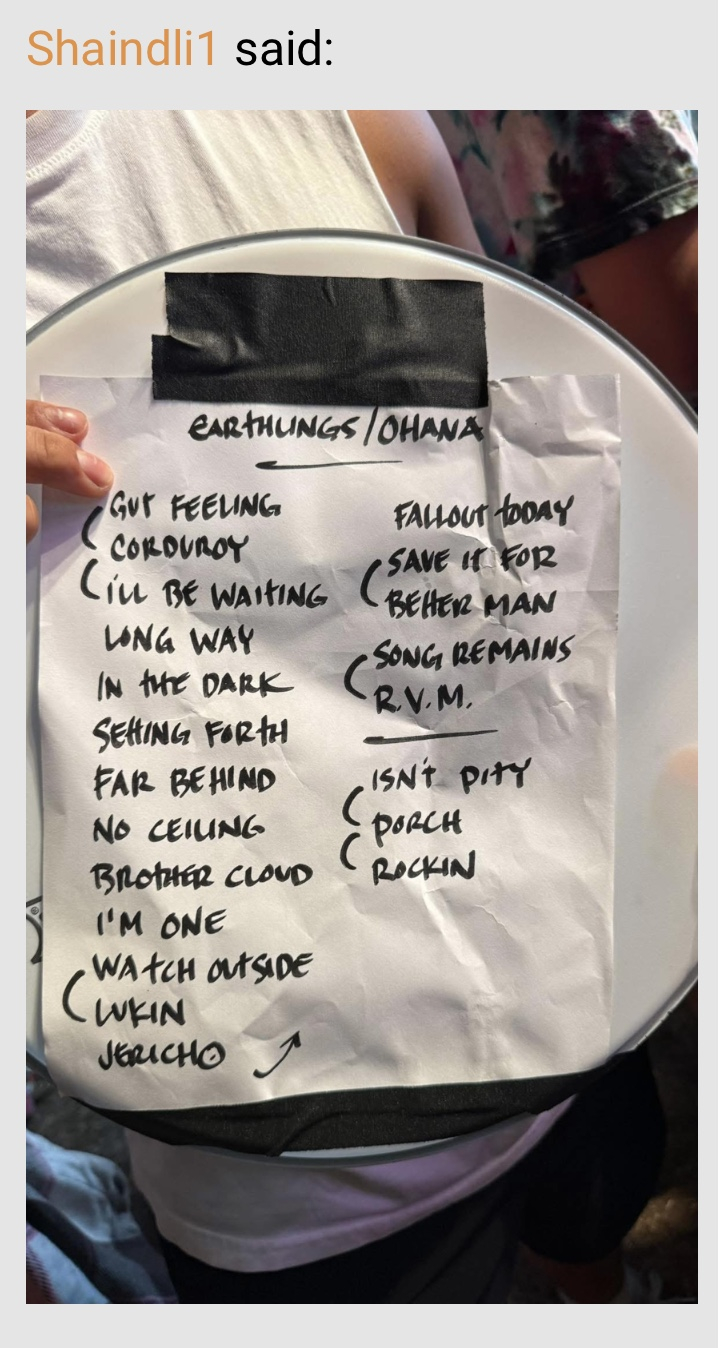 Shaindli1 said:
EARTHLINGS/OHANA
GUT FEELING
CORDUROY
I'LL BE WAITING
LONG WAY
IN THE DARK
SETTING FORTH
FAR BEHIND
NO CEILING
BROTHER CLOUD
I'M ONE
WATCH OUTSIDE
LUKIN
JERICHO
FALLOUT TODAY
SAVE IT FOR
BETTER MAN
SONG REMAINS
R.V.M.
ISN'T PITY
PORCH
ROCKIN